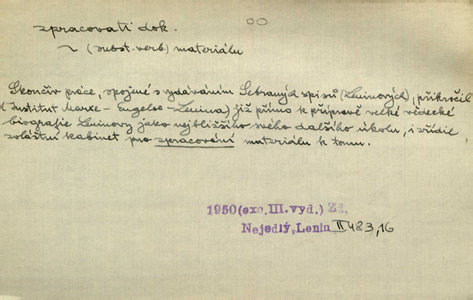 zpracovati dok.
~ (subst. verb.) materiálu
Skončiv práce, spojené s vydáváním Sebraných spisů (Leninových), přikročil
(Institut Marxe-Engelse-Lenina) již přímo k přípravě velké vědecké
biografie Leninovy jako nejbližšího svého dalšího úkolu, i zřídil
zvláštní kabinet pro zpracování materiálu k tomu.
1950 (exc. III. vyd.) Zd.
Nejedlý, Lenin II 483,16